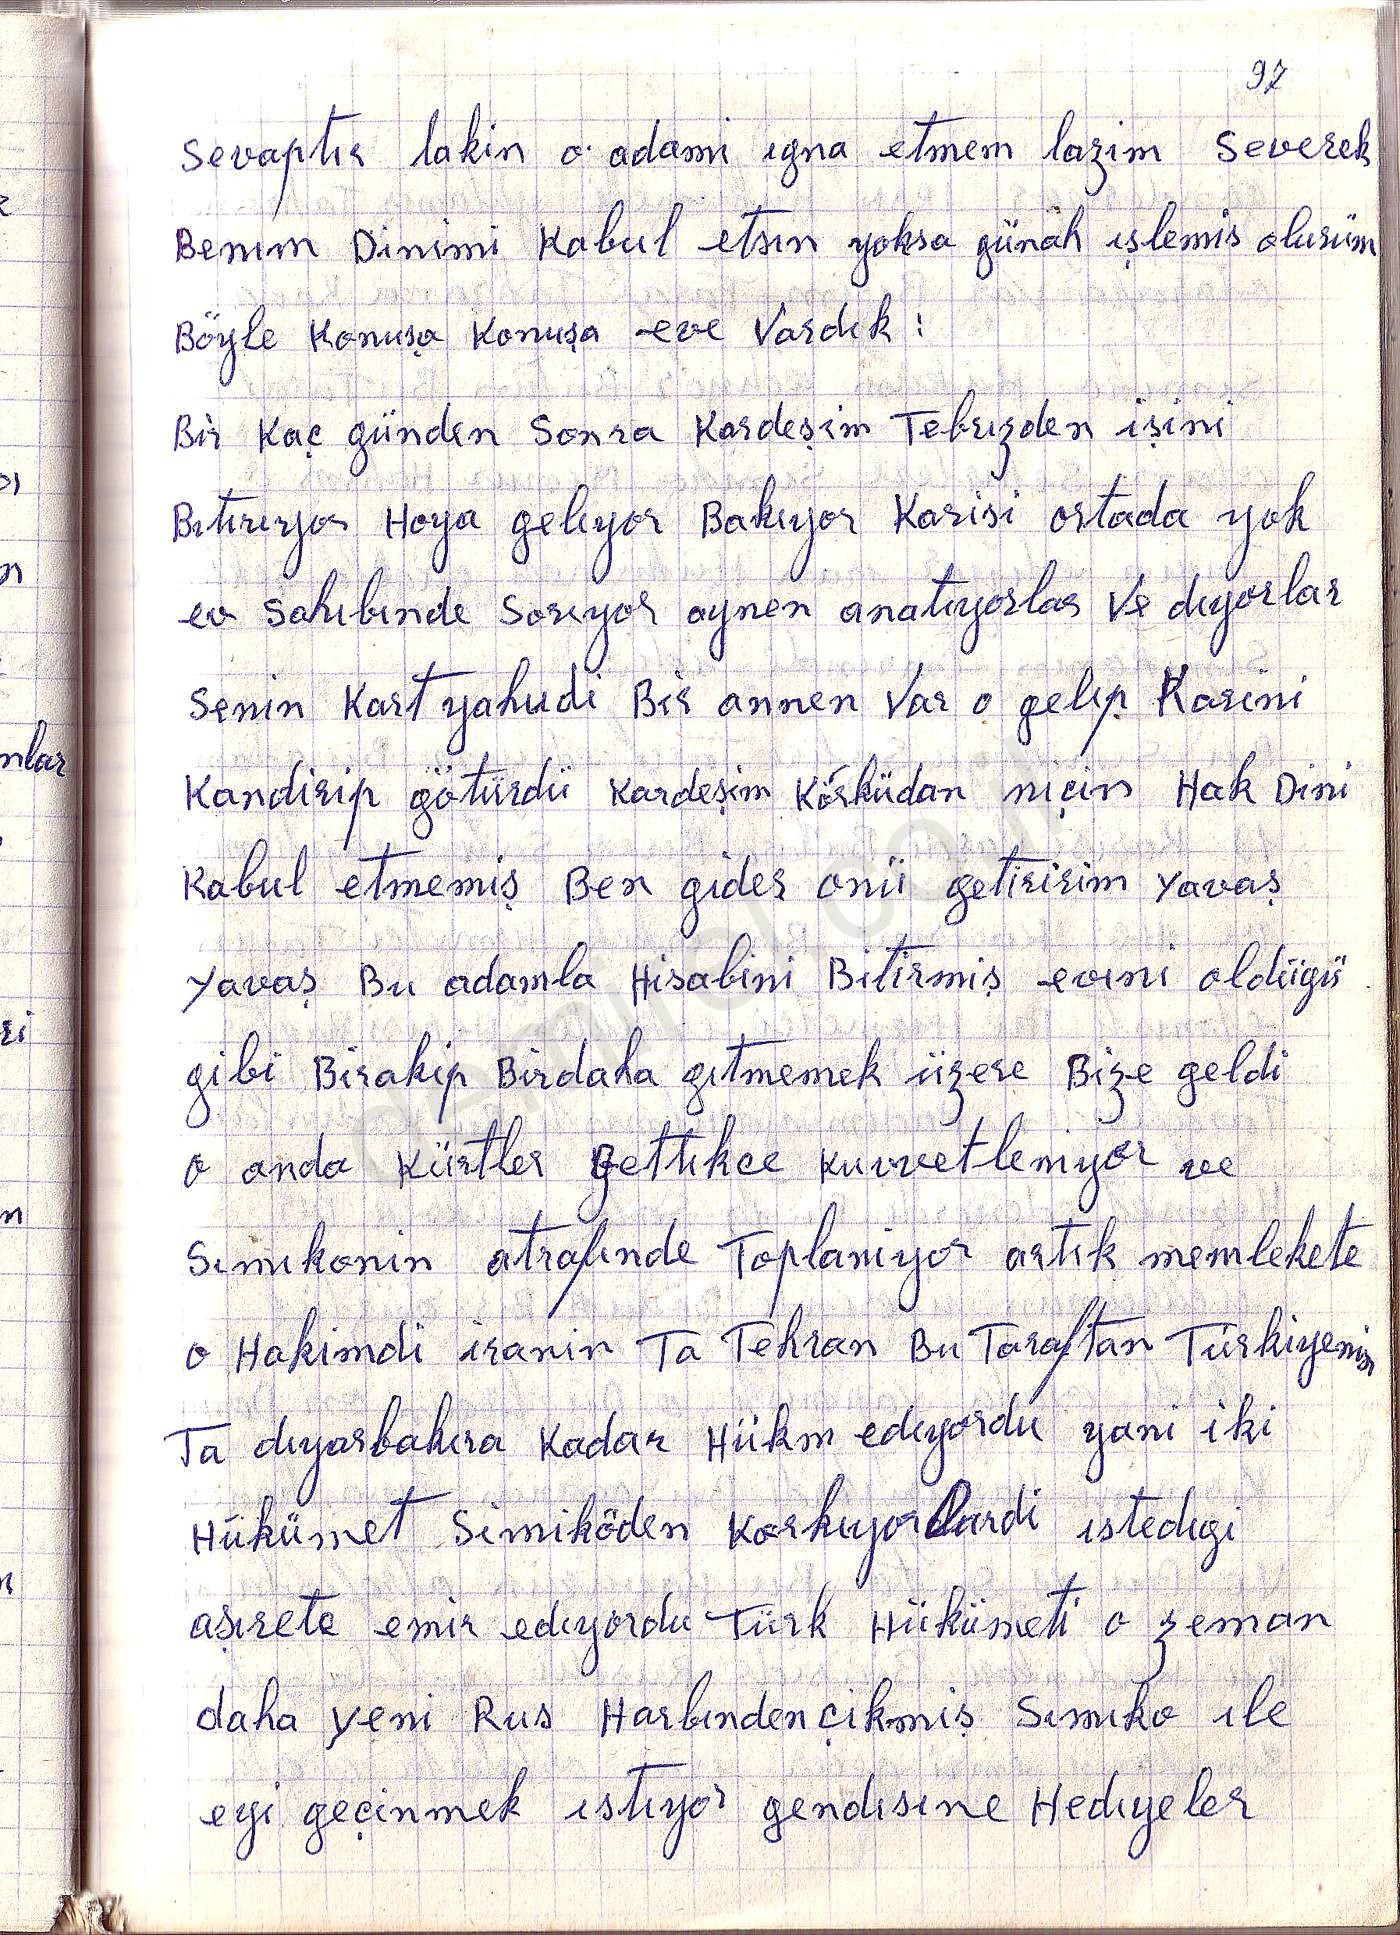 97
Sevaptır lakin o adami ıgna etmem lazim Severek
Benım Dinimi Kabul etsın yoksa günah ışlemis olurüm
Böyle Konuşa Konuşa eve Vardık :
Bir Kaç günden Sonra Kardeşim Tebrızden işini
Bıtırıyor Hoya gelıyor Bakıyor Karisi ortada yok
ev Sahıbınde Sorıyor aynen anatıyorlar Ve dıyorlar
Senin Kart yahudi Bir annen Var o gelıp Karini
Kandirip götürdü Kardeşim Körküdan niçin Hak Dini
Kabul etmemiş Ben gider onü getiririm Yavaş
Yavaş Bu adamla Hisabini Bitirmiş evıni oldügü
gibi Birakip Birdaha gıtmemek üzere Bize geldi
o anda Kürtler gettıkce kuvvetleniyor ve
Sımıkonin atrafınde Toplaniyor artık memlekete
o Hakimdi iranin Ta Tehran Bu Taraftan Türkiyenin
Ta dıyarbakıra Kadar Hükm edıyordu yani iki
Hükümet Simiköden Korkıyorlardi ıstedıgi
aşırete emir edıyordu Türk Hükümeti o zeman
daha yeni Rus Harbınden çikmiş Sımıko ıle
eyi geçinmek ıstıyor gendısıne Hedıyeler
demirel.co.uk